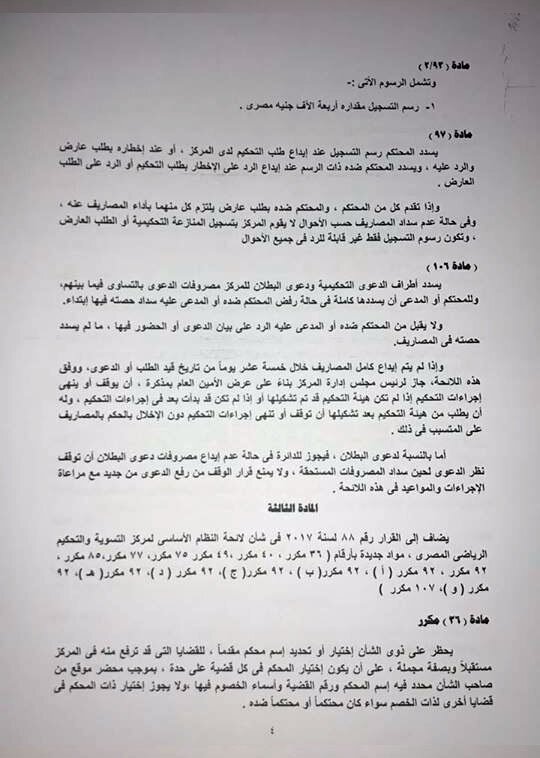 مادة ( ٢/٩٣ )
وتشمل الرسوم الأتى :-
١- رسم التسجيل مقداره أربعة الأف جنيه مصرى .
مادة ( ٩٧ )
يسدد المحتكم رسم التسجيل عند إيداع طلب التحكيم لدى المركز ، أو عند إخطاره بطلب عارض
والرد عليه ، ويسدد المحتكم ضده ذات الرسم عند إيداع الرد على الإخطار بطلب التحكيم أو الرد على الطلب
العارض .
وإذا تقدم كل من المحتكم ، والمحتكم ضده بطلب عارض يلتزم كل منهما بأداء المصاريف عنه ،
وفى حالة عدم سداد المصاريف حسب الأحوال لا يقوم المركز بتسجيل المنازعة التحكيمية أو الطلب العارض
، وتكون رسوم التسجيل فقط غير قابلة للرد فى جميع الأحوال
مادة ( ١٠٦ )
يسدد أطراف الدعوى التحكيمية ودعوى البطلان للمركز مصروفات الدعوى بالتساوى فيما بينهم،
وللمحتكم أو المدعى أن يسددها كاملة فى حالة رفض المحتكم ضده أو المدعى عليه سداد حصته فيها إبتداء.
ولا يقبل من المحتكم ضده أو المدعى عليه الرد على بيان الدعوى أو الحضور فيها ، ما لم يسدد
حصته فى المصاريف.
وإذا لم يتم إيداع كامل المصاريف خلال خمسة عشر يوماً من تاريخ قيد الطلب أو الدعوى، ووفق
هذه اللائحة، جاز لرئيس مجلس إدارة المركز بناءً على عرض الأمين العام بمذكرة ، أن يوقف أو ينهى
إجراءات التحكيم إذا لم تكن هيئة التحكيم قد تم تشكيلها أو إذا لم تكن قد بدأت بعد فى إجراءات التحكيم ، وله
أن يطلب من هيئة التحكيم بعد تشكيلها أن توقف أو تنهى إجراءات التحكيم دون الإخلال بالحكم بالمصاريف
على المتسبب فى ذلك .
أما بالنسبة لدعوى البطلان ، فيجوز للدائرة فى حالة عدم إيداع مصروفات دعوى البطلان أن توقف
نظر الدعوى لحين سداد المصروفات المستحقة ، ولا يمنع قرار الوقف من رفع الدعوى من جديد مع مراعاة
الإجراءات والمواعيد فى هذه اللائحة .
المادة الثالثة
يضاف إلى القرار رقم ٨٨ لسنة ٢٠١٧ فى شأن لائحة النظام الأساسى لمركز التسوية والتحكيم
الرياضى المصرى ، مواد جديدة بأرقام ( ٣٦ مكرر ، ٤٠ مكرر ،٤٩ مكرر ٧٥ مكرر، ٧٧ مكرر،٨٥ مكرر ،
٩٢ مكرر ، ٩٢ مكرر ( أ ) ، ٩٢ مكرر( ب ) ، ٩٢ مكرر( ج )، ٩٢ مكرر ( د )، ٩٢ مكرر( هـ )، ٩٢
مكرر ( و )، ١٠٧ مكرر )
مادة ( ٣٦ ) مكرر
يحظر على ذوى الشأن إختيار أو تحديد إسم محكم مقدماً ، للقضايا التى قد ترفع منه فى المركز
مستقبلاً وبصفة مجملة ، على أن يكون إختيار المحكم فى كل قضية على حدة ، بموجب محضر موقع من
صاحب الشأن محدد فيه إسم المحكم ورقم القضية وأسماء الخصوم فيها ،ولا يجوز إختيار ذات المحكم فى
قضايا أخرى لذات الخصم سواء كان محتكماً أو محتكماً ضده .
٤